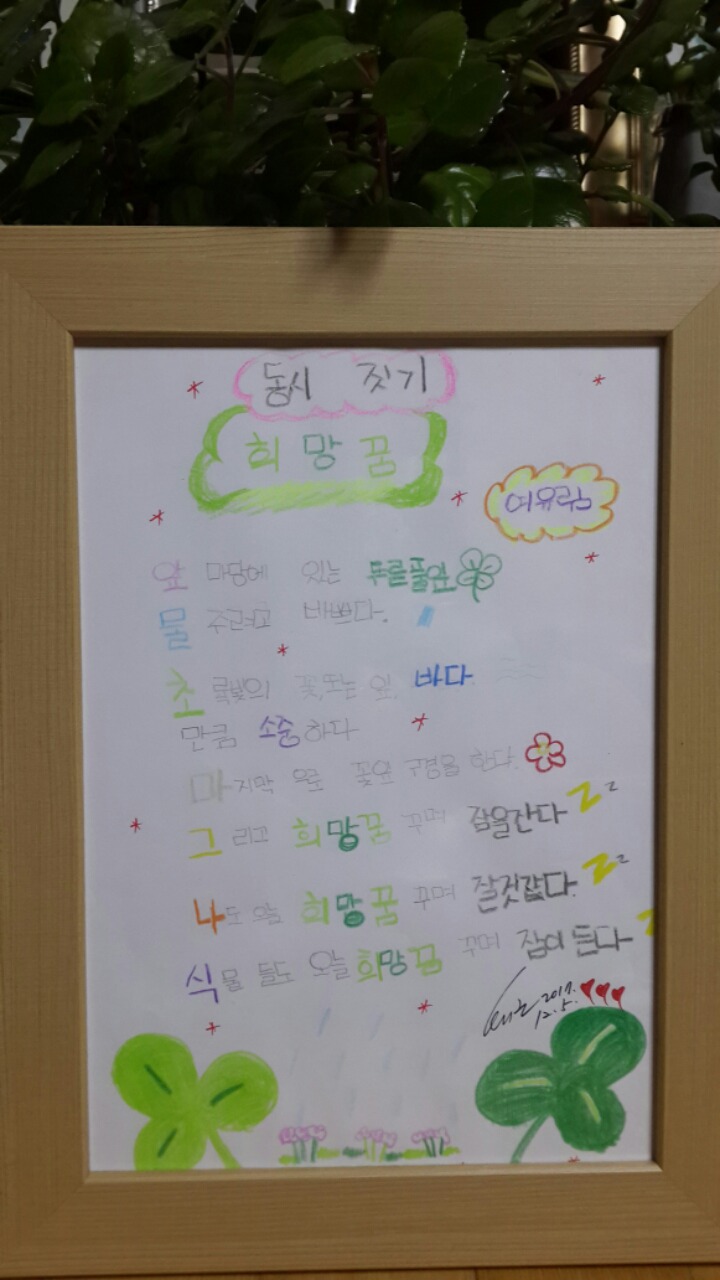 동시 짓기
희망꿈
여유림
앞 마당에 있는 푸를풀잎
물 주려고 바쁘다.
초 록빛의 꽃또는 잎 바다
만큼 소중하다
마지막 으로 꽃잎 구경을 한다.
그 리고 희망꿈 꾸며 잠을간다 Zz
나도 오늘 희망꿈 꾸며 잘것같다. Zz
식물 들도 오늘 희망꿈 꾸며 잠이 든다
2017.
12.5.